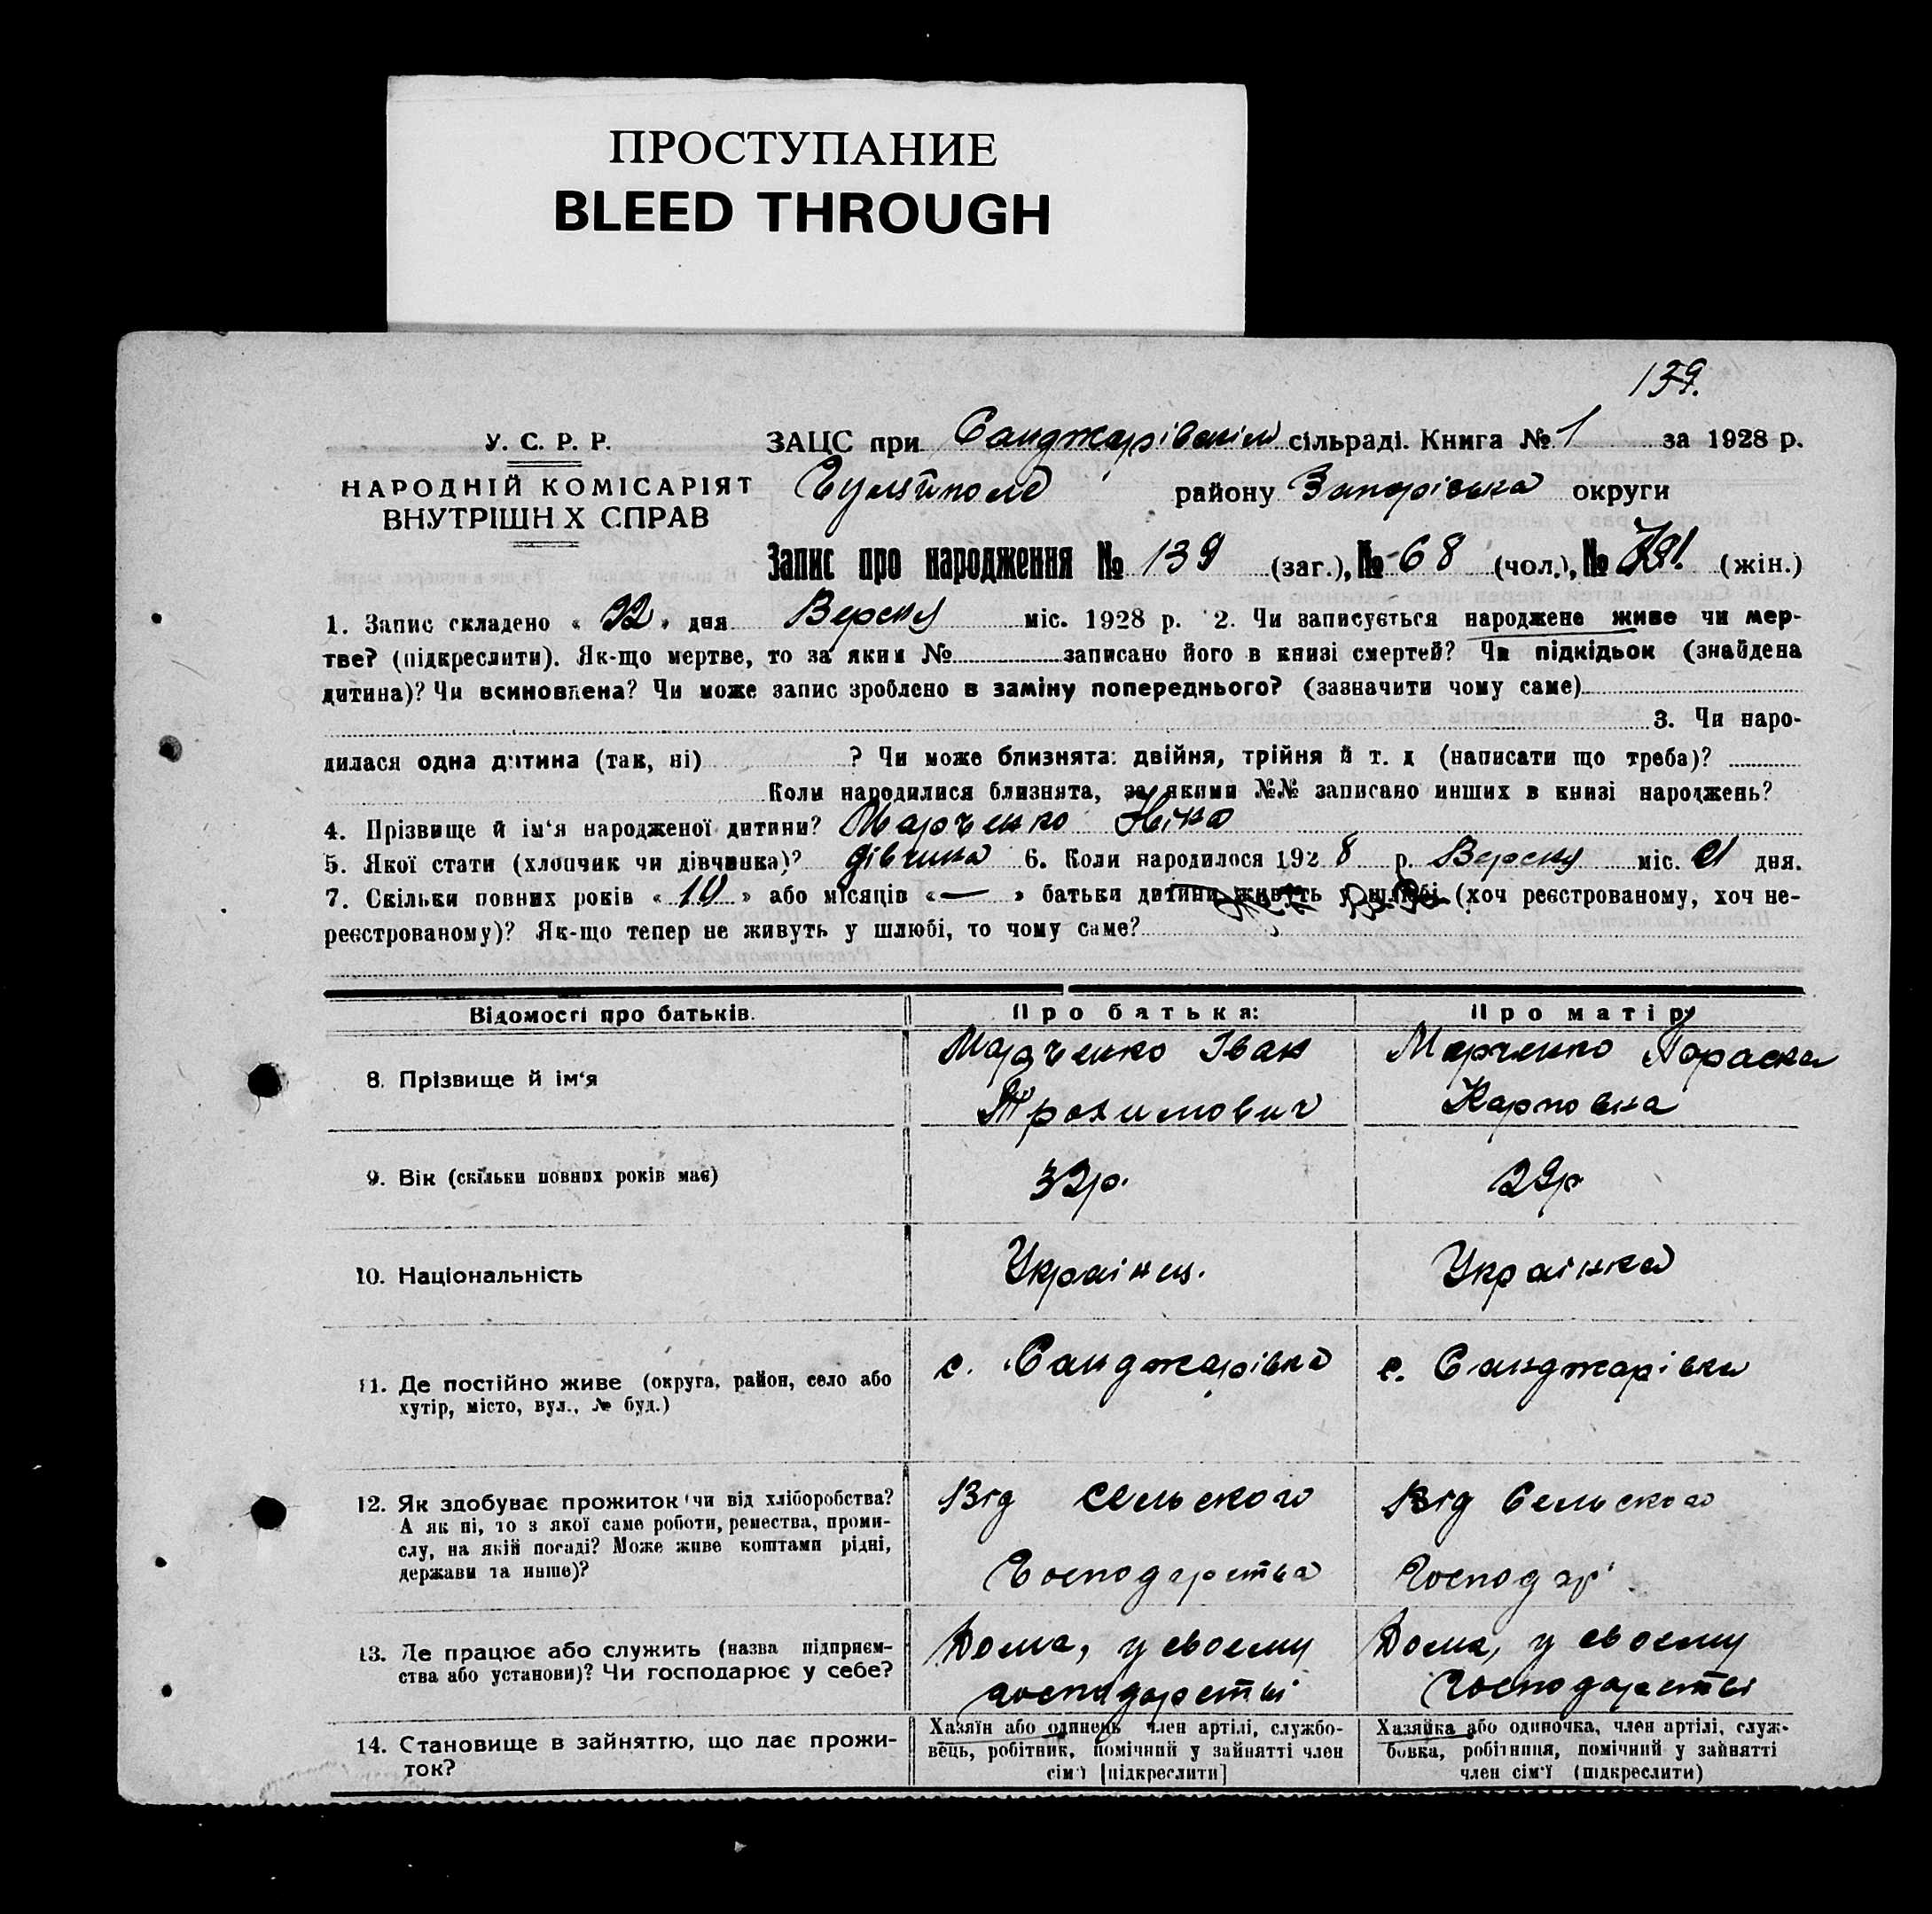 ПРОСТУПАНИЕ
BLEED THROUGH
139.
У. С. Р. Р.
НАРОДНІЙ КОМІСАРІЯТ
ВНУТРІШН Х СПРАВ
ЗАЦС при Санджарівській сільраді. Книга № 1 за 1928 р.
Гуляйполе району Запоріська округи
Запис про народження № 139 (заг.), № 68 (чол.), № 71. (жін.)
1. Запис складено « 22 » дня Версня міс. 1928 р. 2. Чи записується народжене живе чи мер-
тве? (підкреслити). Як-що мертве, то за яким № записано його в книзі смертей? Чи підкідьок (знайдена
дитина)? Чи всиновлена? Чи може запис зроблено в заміну попереднього? (зазначити чому саме)
3. Чи наро-
дилася одна дитина (так, ні) ? Чи може близнята: двійня, трійня й т. д (написати що треба)?
Коли народилися близнята, за якими №№ записано инших в книзі народжень?
4. Прізвище й ім'я народженої дитини? Марченко Ніна
5. Якої стати (хлопчик чи дівчинка)? дівчина 6. Коли народилося 1928 р. Версня міс. 21 дня.
7. Скільки повних років « 10 » або місяців « — » батьки дитини живуть у шлюбі (хоч реєстрованому, хоч не-
реєстрованому)? Як-що тепер не живуть у шлюбі, то чому саме?
Відомості про батьків. Про батька: Про матір:
8. Прізвище й ім'я
Марченко Іван
Трохимович
Марченко Параска
Карповна
9. Вік (скільки повних років має)
32р.
29р
10. Національність
Українец.
Українка
11. Де постійно живе (округа, район, село або
хутір, місто, вул., № буд.)
с. Санджарівка
с. Санджарівка
12. Як здобуває прожиток чи від хліборобства?
А як ні, то з якої саме роботи, ремества, проми-
слу, на якій посаді? Може живе коштами рідні,
держави та инше)?
Від сельского
Господарства
Від Сельского
Господар.
13. Де працює або служить (назва підприєм-
ства або установи)? Чи господарює у себе?
Дома, у своему
господарстві
Дома, у своему
Господарстві
14. Становище в зайняттю, що дає прожи-
ток?
Хазяїн або одинець член артілі, службо-
вець, робітник, помічний у зайнятті член
сім'ї [підкреслити]
Хазяйка або одиночка, член артілі, служ-
бовка, робітниця, помічний у зайнятті
член сім'ї (підкреслити)